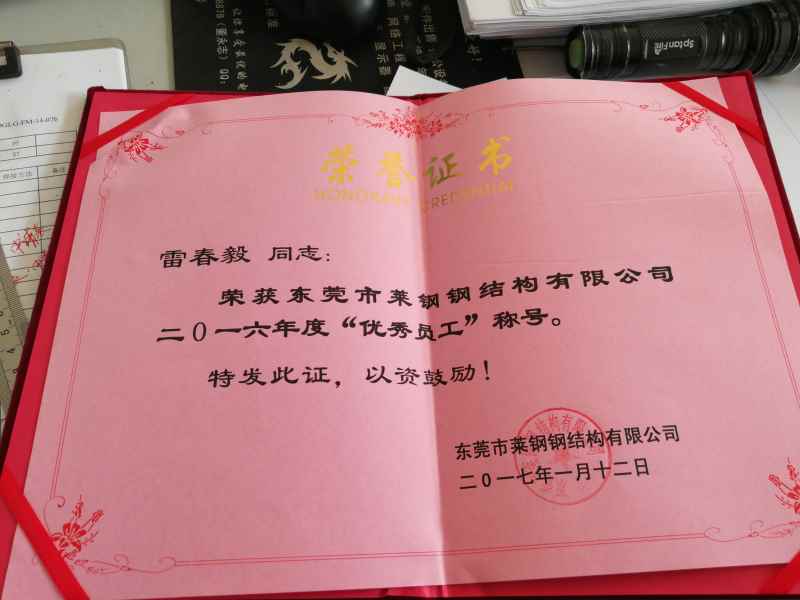 荣誉证书
HONORARY CREDENTIAL
雷春毅 同志：
荣获东莞市莱钢钢结构有限公司
二0一六年度“优秀员工”称号。
特发此证，以资鼓励！
东莞市莱钢钢结构有限公司
二0一七年一月十二日
网络工程
显示器
焊接方法
备注